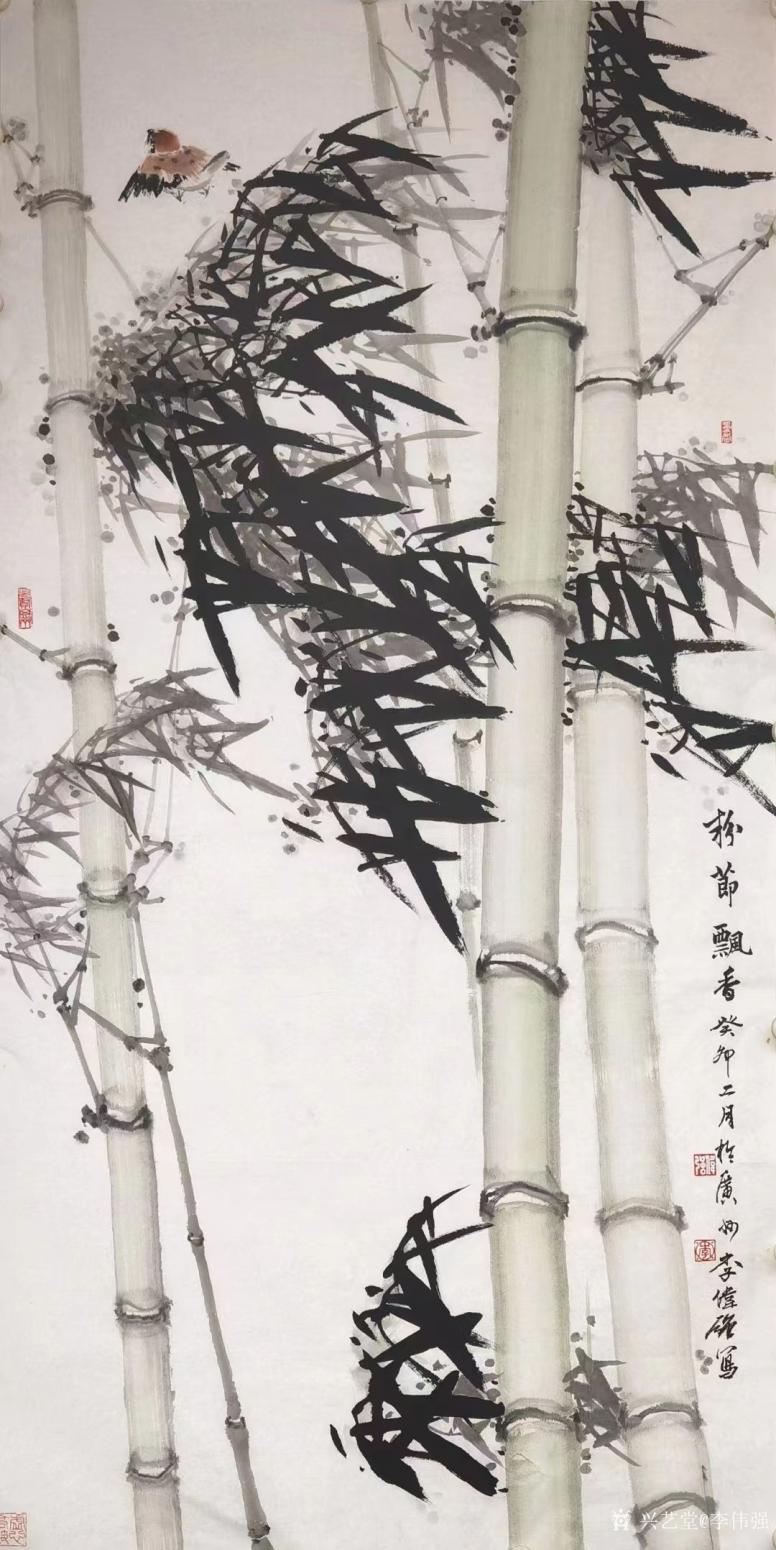 粉節飄香癸卯二月於廣州李偉強寫
兴艺堂@李伟强